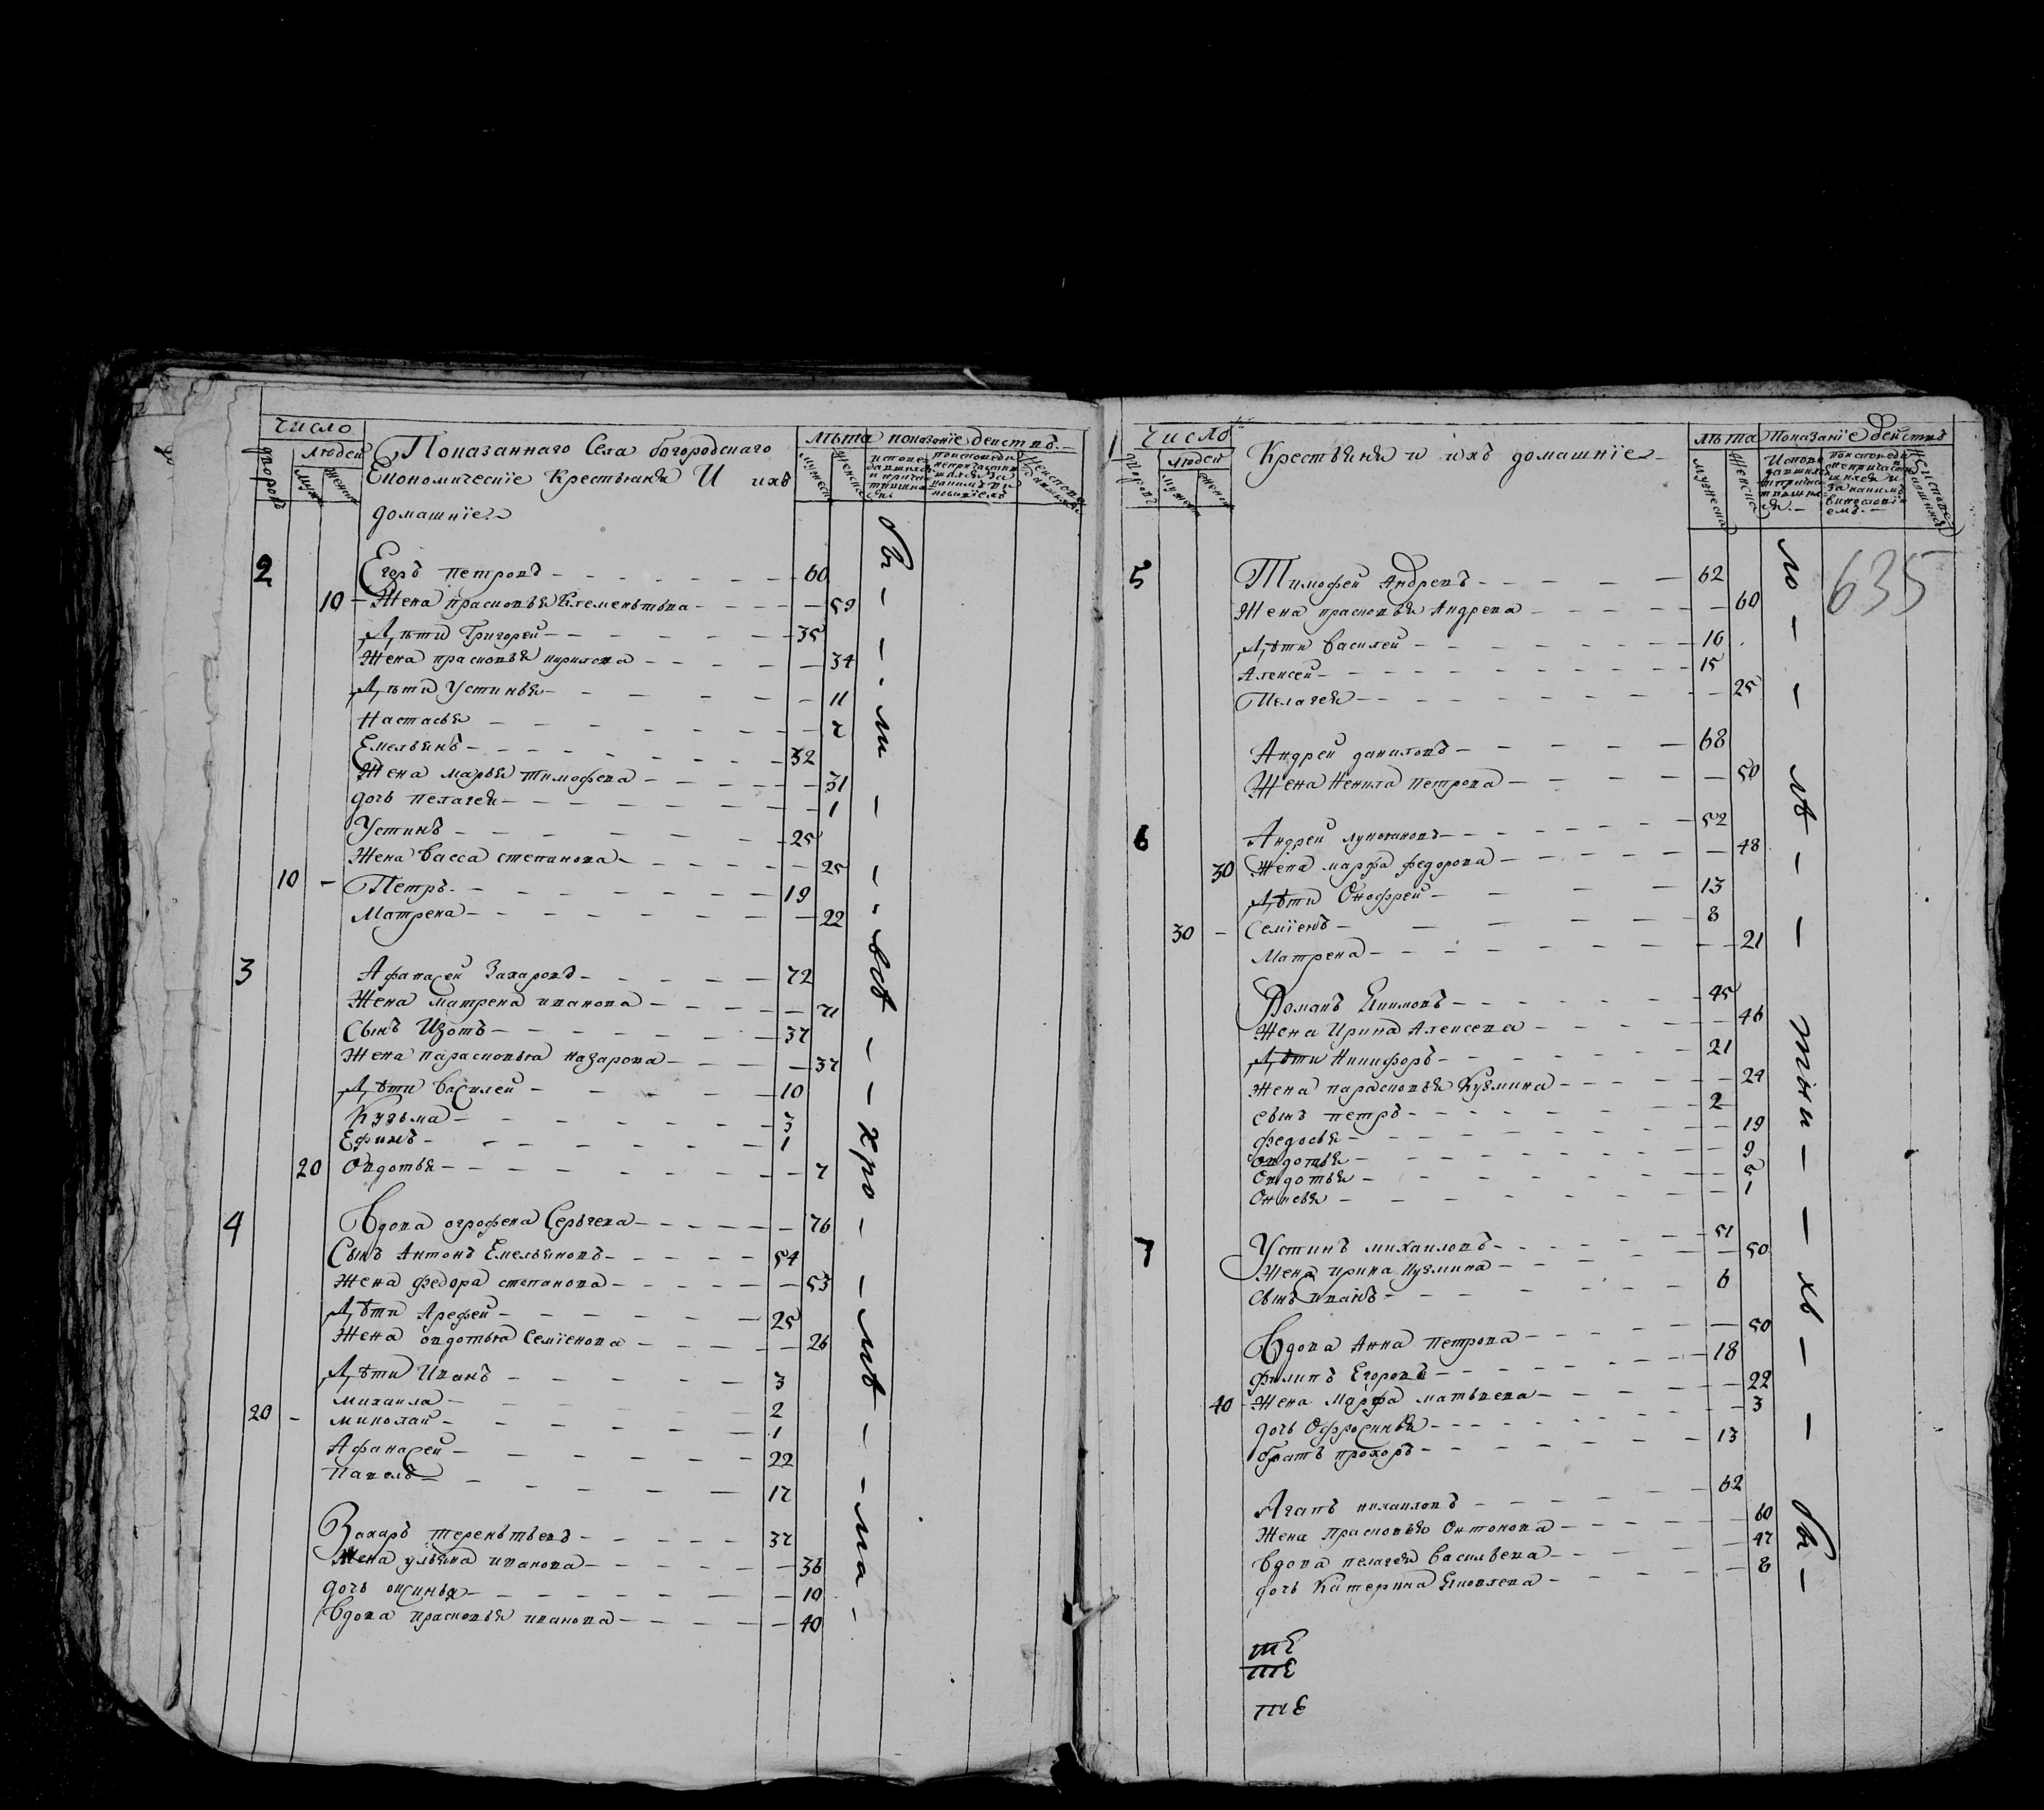 число
людей
дворовъ
мужес
женск
Показаннаго Села богородскаго
Економическïе Крестьяня И ихъ
домашнïе
лѣта показанïе действъ
мужеск
женска
2 Егоръ петровъ 60
10 Жена прасковья Клеменьтьва 59
Дѣти Григорей 35
Жена прасковья кирилова 34
Дѣти Устинья 11
Настасья 7
Емельянъ 32
Жена марья тимофева 31
дочь пелагея 1
Устинъ 25
Жена васса степанова 25
10 Петръ 19
Матрена 22
3 Афанасей Захаровъ 72
Жена матрена иванова 71
Сынъ Изотъ 37
Жена парасковья назарова 37
Дѣти василей 10
Кузьма 3
Ефимъ 1
20 Овдотья 7
4 Вдова огрофена Сергѣева 76
Сынъ Антонъ Емельяновъ 54
Жена федора степанова 53
Дѣти Арефей 25
Жена овдотья Семïенова 26
Дѣти Иванъ 3
михаила 2
20 миколаи 1
Афанасей 22
павелъ 17
Захаръ тереньтьевъ 37
Жена ульяна иванова 36
дочь оксинья 10
Вдова прасковья иванова 40
бы - ли - вѣ - хро - лѣ - ма
число
людей
дворовъ
мужеск
женск
Крестьяня и ихъ домашнïе
лѣта показанïе действъ
мужеска
женска
635
5 Тимофей Андревъ 62
Жена прасковья Андрева 60
Дѣти василей 16
Алексей 15
Пелагея 25
Андрей даниловъ 68
Жена Ненила петрова 50
6 Андрей лукояновъ 52
30 Жена марфа федорова 48
Дѣти Онофрей 13
30 Семïенъ 8
Матрена 21
Романъ Якимовъ 45
Жена Ирина Алексева 46
Дѣти Никифоръ 21
Жена парасковья Кузмина 24
сынъ петръ 2
федосья 19
овдотья 9
Овдотья 5
Оксенья 1
7 Устинъ михаиловъ 51
Жена ирина кузмина 50
сынъ иванъ 6
Вдова Анна петрова 50
филипъ Егоровъ 18
40 Жена Марфа матьвева 22
дочь Офросинья 3
братъ прохоръ 13
Агапъ михаиловъ 62
Жена Прасковья Онтонова 60
вдова пелагея васильева 47
дочь Катерина Яковлева 8
ю - лѣ - тьни - хъ - бы
тЕ
тЕ
тЕ